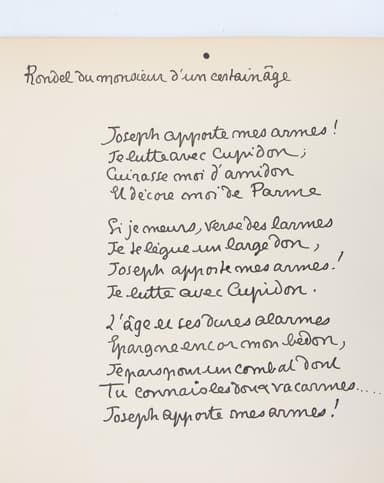 Rondel du monsieur d'un certain âge
Joseph apporte mes armes !
Je lutte avec Cupidon ;
Cuirasse moi d'amidon
Et décore moi de Parme
Si je meurs, verse des larmes
Je te lègue un large don,
Joseph apporte mes armes !
Je lutte avec Cupidon.
L'âge et ses dures alarmes
Epargne encor mon bedon,
Je pars pour un combat dont
Tu connais les doux vacarmes.....
Joseph apporte mes armes !